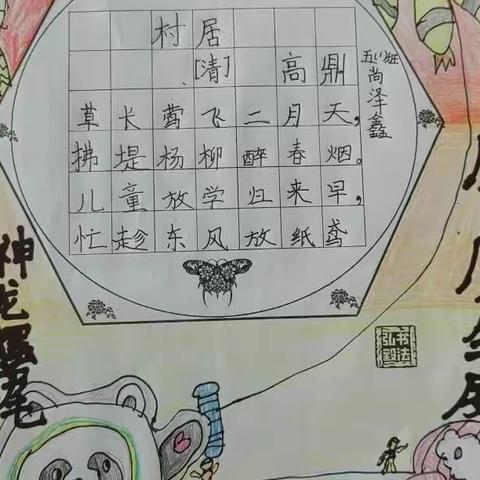 村居
[清] 高鼎
五(1)班
尚泽鑫
草长莺飞二月天,
拂堤杨柳醉春烟。
儿童放学归来早,
忙趁东风放纸鸢
神龙
书法